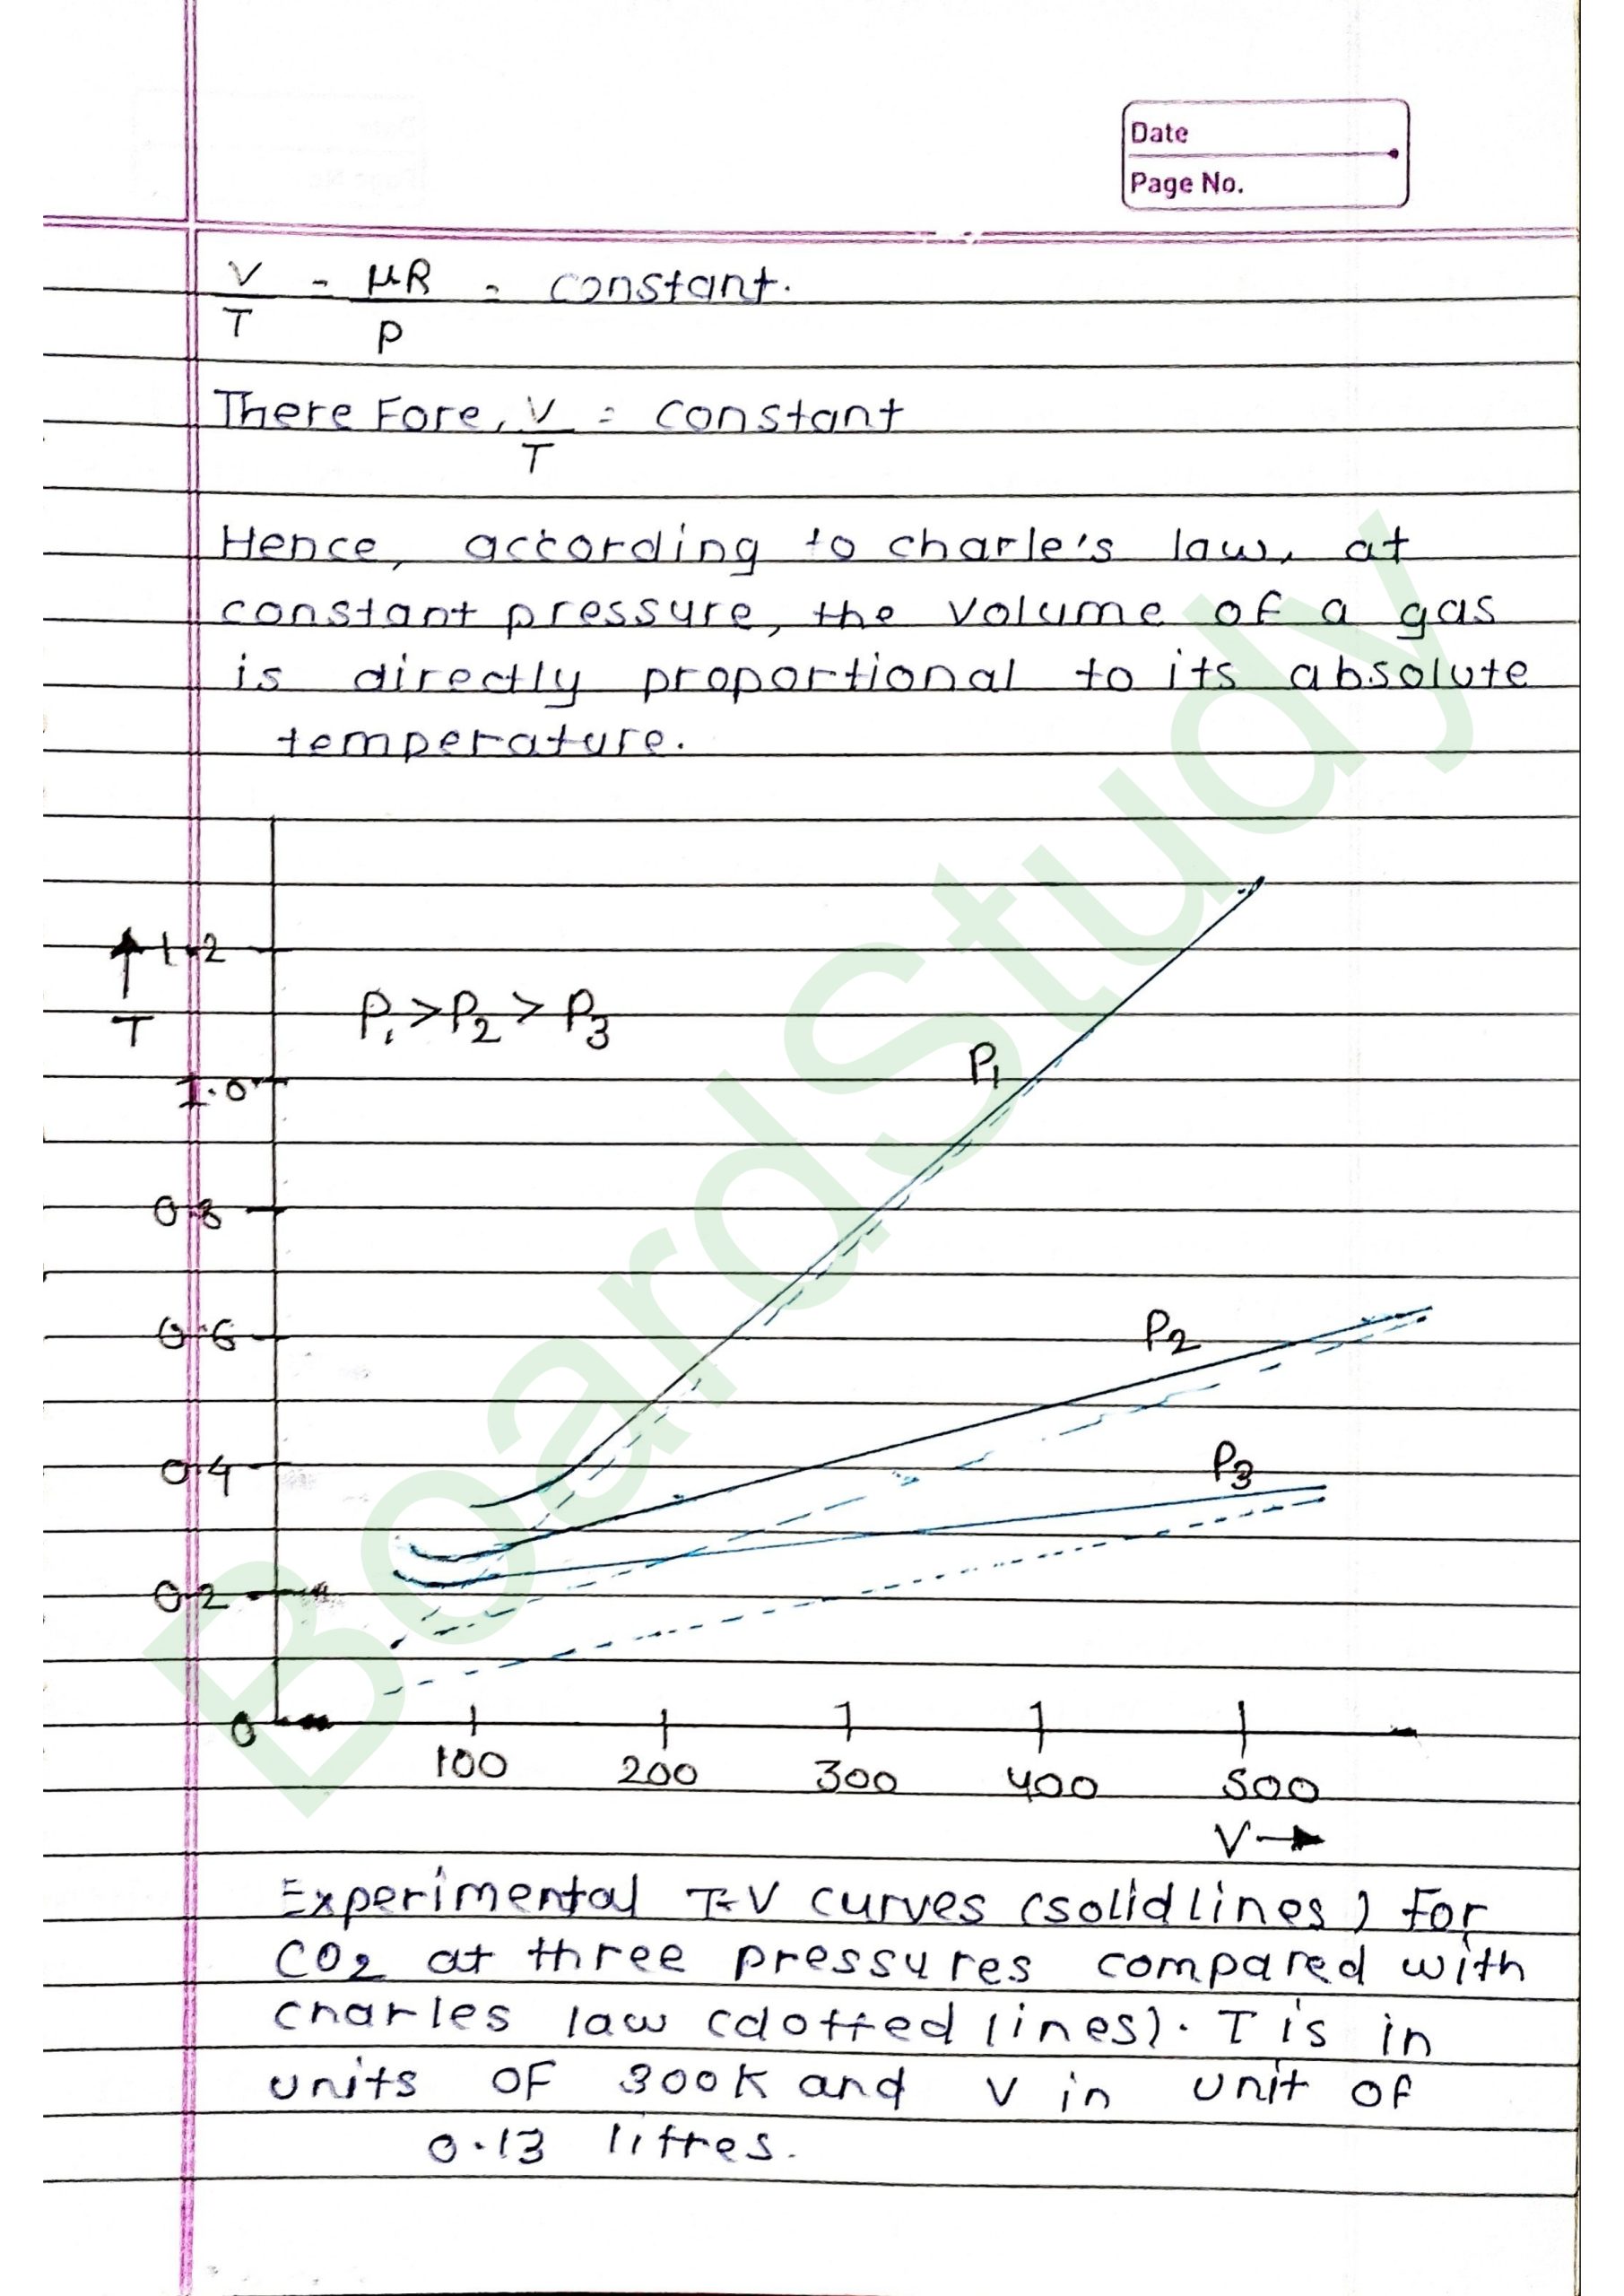 Date
Page No.
V/T = μR/P = constant.
There Fore, V/T = constant
Hence, according to charle's law, at
constant pressure, the volume of a gas
is directly proportional to its absolute
temperature.
1.2
T
P₁ > P₂ > P₃
P₁
1.0
0.8
0.6
P₂
0.4
P₃
0.2
0
100 200 300 400 500
V →
Experimental T-V curves (solid lines) For
CO₂ at three pressures compared with
charles law (dotted lines). T is in
units OF 300K and V in unit of
0.13 littres.
BoardStudy